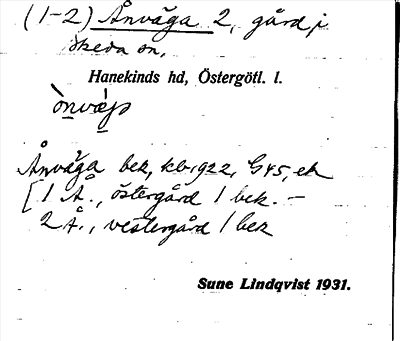 (1-2) Ånväga 2, gård i
Skeda sn,
Hanekinds hd, Östergötl. l.
Ånväga bek, kb 1922, G45, ek
[1 Å., östergård 1 bek. -
2 Å., vestergård 1 bek
Sune Lindqvist 1931.